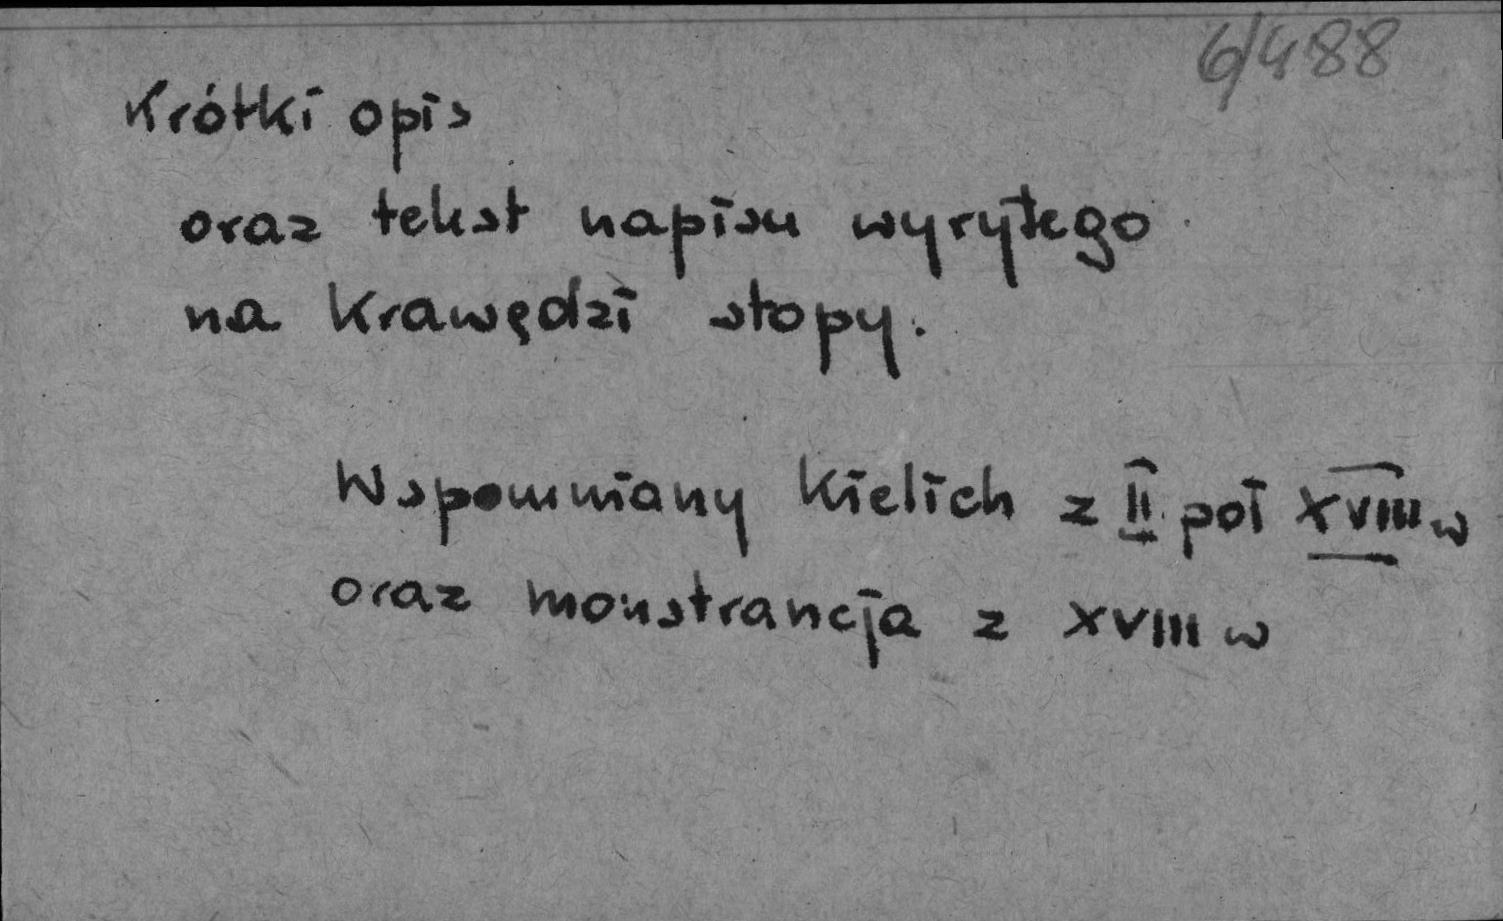 6/488
Krótki opis
oraz tekst napisu wyrytego
na krawędzi stopy.
Wspomniany kielich z II poł XVIII w
oraz monstrancja z XVIII w